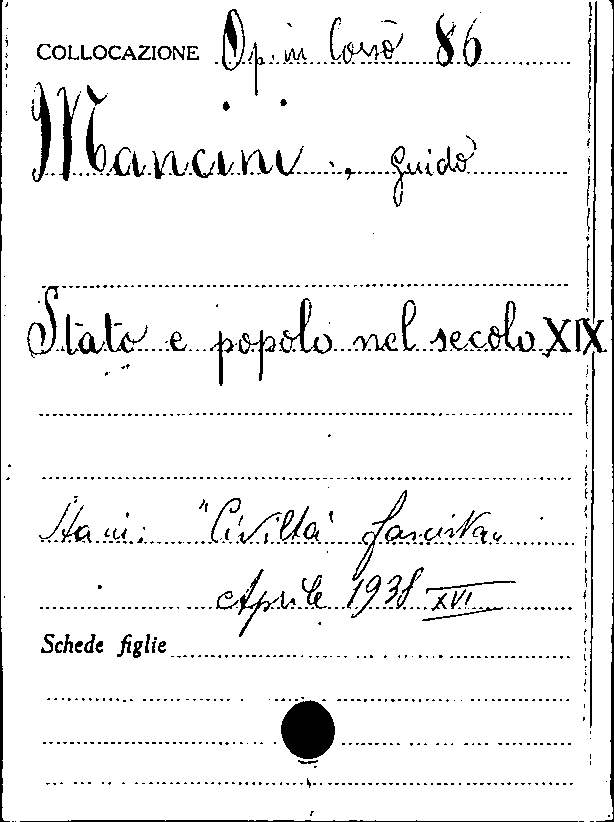 COLLOCAZIONE Op. in Corso 86
Mancini, Guido
Stato e popolo nel secolo XIX
Sta in: "Civiltà fascista"
Aprile 1938 XVI
Schede figlie